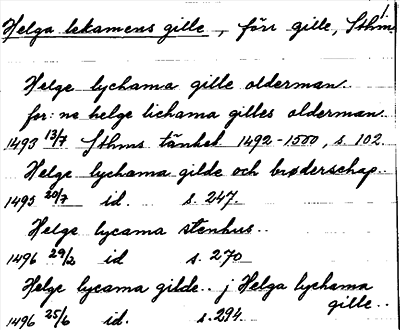 1.
Helga lekamens gille, förr gille, Sthm
Helge lychama gille olderman.
for: ne helge lichama gilles olderman..
1493 13/7 Sthms tänkeb 1492-1500, s. 102.
Helge lychama gilde och brøderschap..
1495 20/7 id. s. 247.
Helge lycama stenhus..
1496 29/2 id s. 270
Helge lycama gilde.. j Helga lychama
gille..
1496 25/6 id. s. 294.